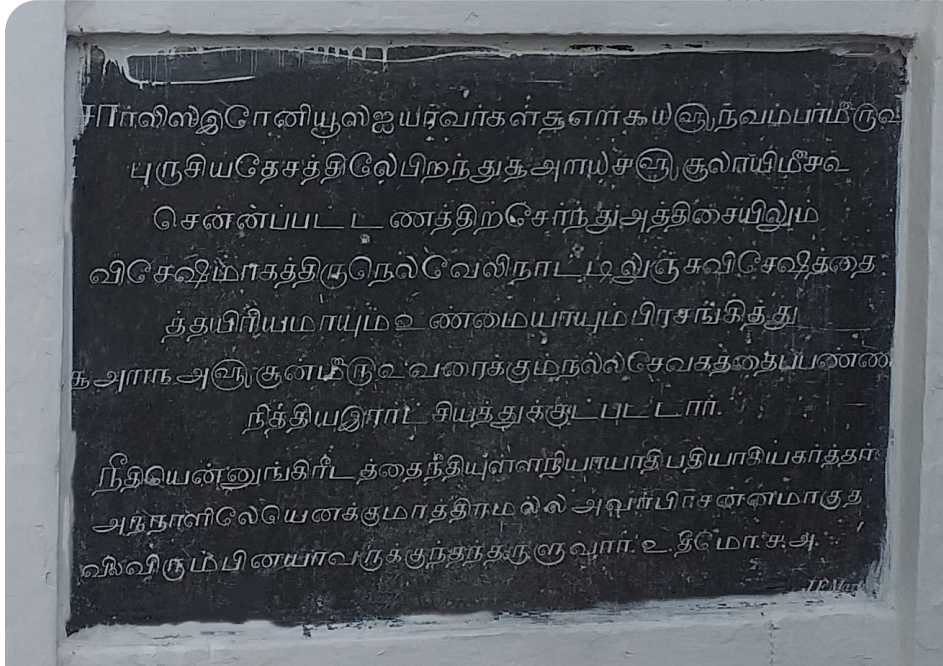 சார்லிஸ்இரேனியூஸ்ஐயர்வர்கள்
புருசியதேசத்திலேபிறந்து
சென்னப்பட்டணத்திற்சேர்ந்துஅத்திசையிலும்
விசேஷமாகத்திருநெல்வேலிநாட்டிலுஞ்சுவிசேஷத்தை
த்தயிரியமாயும்உண்மையாயும்பிரசங்கித்து
வரைக்கும்நல்லசேவகத்தைப்பண்ணி
நித்தியஇராட்சியத்துக்குட்பட்டார்.
நீதியென்னுங்கிரீடத்தைநீதியுள்ளநியாயாதிபதியாகியகர்த்தர்
அந்நாளிலேயெனக்குமாத்திரமல்ல அவர்பிரசன்னமாகுத
லைவிரும்பினயாவருக்குந்தந்தருளுவார். உ.தீமோ.ச.அ.